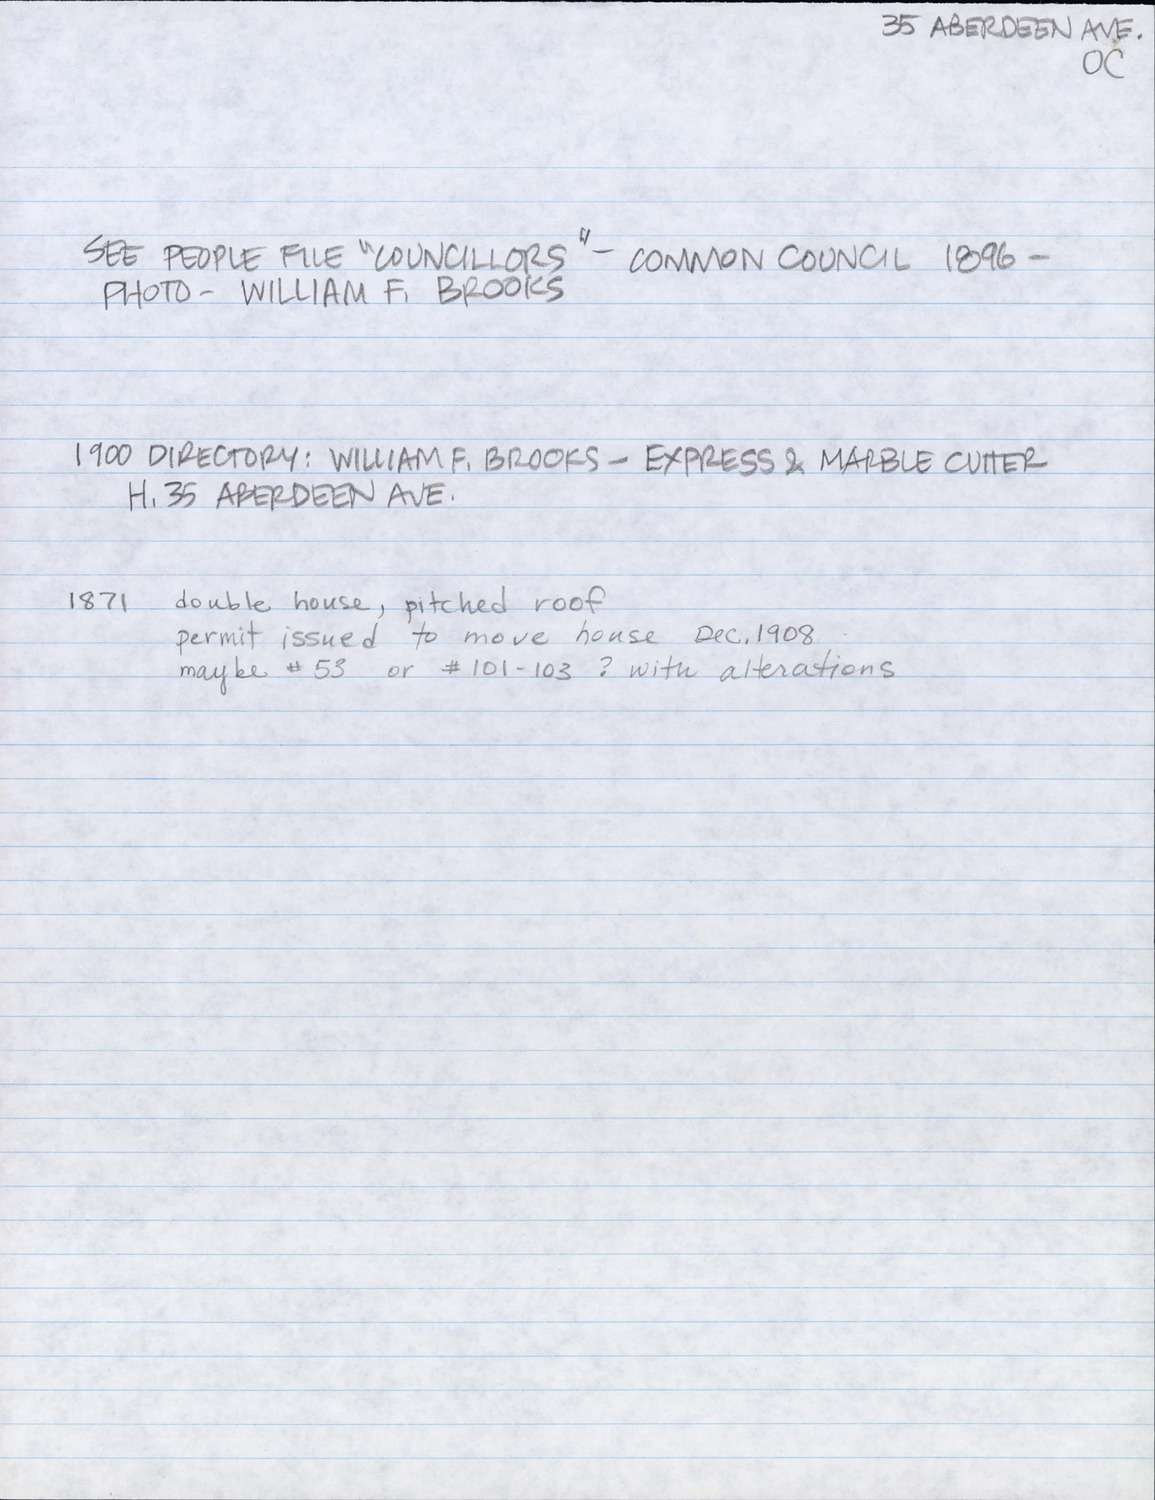 35 ABERDEEN AVE.
OC
SEE PEOPLE FILE "COUNCILLORS" - COMMON COUNCIL 1896 -
PHOTO - WILLIAM F. BROOKS
1900 DIRECTORY: WILLIAM F. BROOKS - EXPRESS & MARBLE CUTTER
H. 35 ABERDEEN AVE.
1871 double house, pitched roof
permit issued to move house Dec. 1908
maybe # 53 or # 101-103 ? with alterations